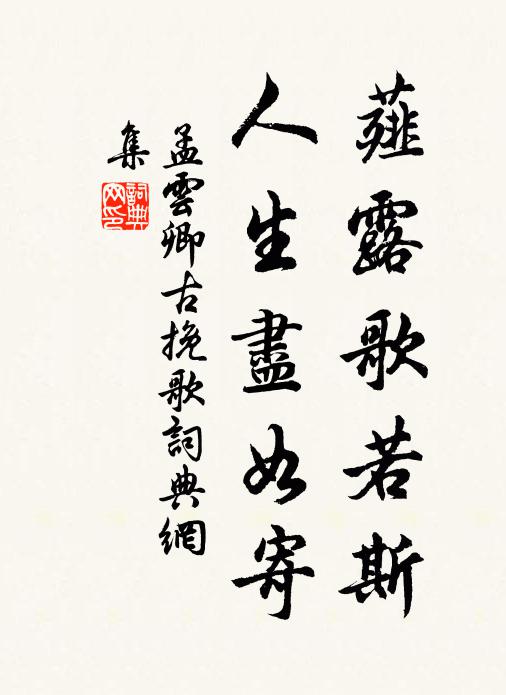 薤露歌若斯
人生盡如寄
孟雲卿古挽歌詞典網
集
詞典
网印